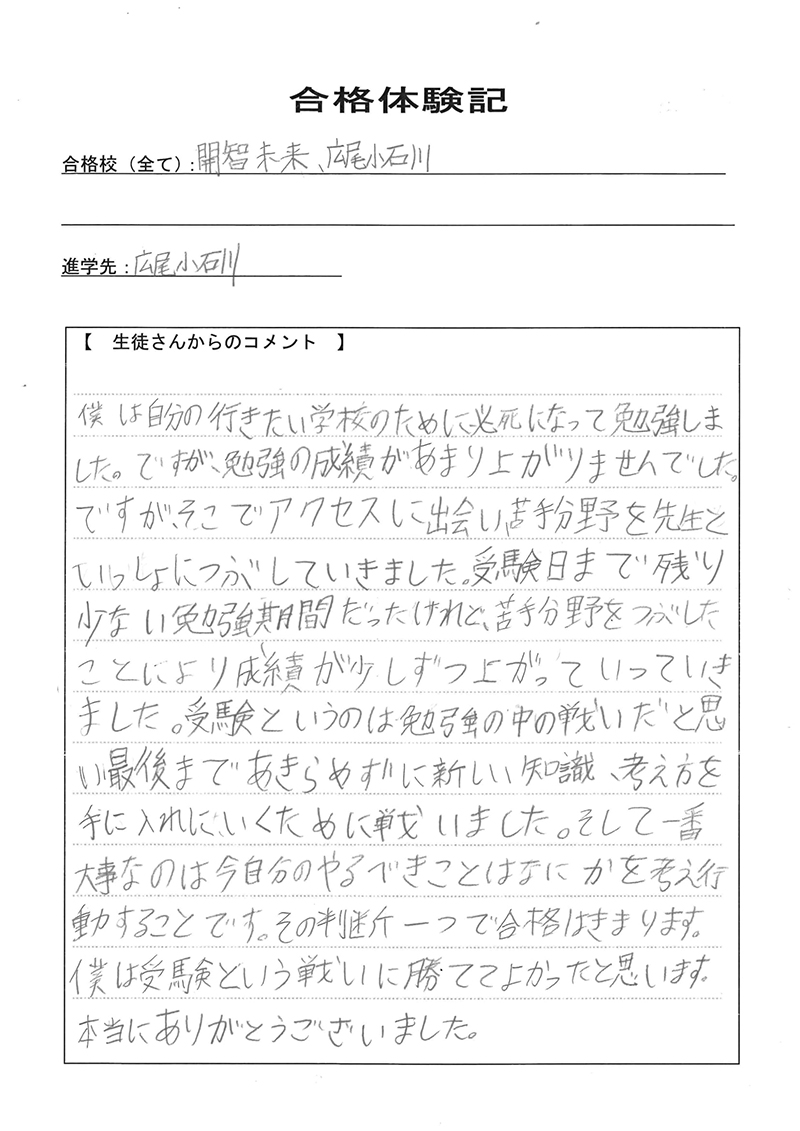 合格体験記
合格校（全て）：開智未来、広尾小石川
進学先：広尾小石川
【　生徒さんからのコメント　】
僕は自分の行きたい学校のために、必死になって勉強しま
した。ですが、勉強の成績があまり上がりませんでした。
ですが、そこでアクセスに出会い、苦手分野を先生と
いっしょにつぶしていきました。受験日まで残り
少ない勉強期間だったけれど、苦手分野をつぶした
ことにより成績が少しずつ上がっていっていき
ました。受験というのは勉強の中の戦いだと思
い最後まであきらめずに新しい知識、考え方を
手に入れに、いくために戦いました。そして一番
大事なのは今自分のやるべきことはなにかを考え行
動することです。その判断一つで合格はきまります。
僕は受験という戦いに勝ててよかったと思います。
本当にありがとうございました。